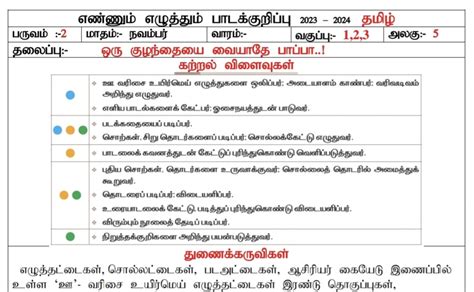 எண்ணும் எழுத்தும் பாடக்குறிப்பு 2023 – 2024 தமிழ்
பருவம் :-2 மாதம்:- நவம்பர் வாரம்:- வகுப்பு:- 1,2,3 அலகு:- 5
தலைப்பு:- ஒரு குழந்தையை வையாதே பாப்பா..!
கற்றல் விளைவுகள்
• ஊ வரிசை உயிர்மெய் எழுத்துகளை ஒலிப்பர்; அடையாளம் காண்பர்; வரிவடிவம் அறிந்து எழுதுவர்.
• எளிய பாடல்களைக் கேட்பர்; ஓசைநயத்துடன் பாடுவர்.
• படக்கதையைப் படிப்பர்.
• சொற்கள், சிறு தொடர்களைப் படிப்பர்; சொல்லக்கேட்டு எழுதுவர்.
• பாடலைக் கவனத்துடன் கேட்டுப் புரிந்துகொண்டு வெளிப்படுத்துவர்.
• புதிய சொற்கள், தொடர்களை உருவாக்குவர்; சொல்லைத் தொடரில் அமைத்துக் கூறுவர்.
• தொடரைப் படிப்பர்; விடையளிப்பர்.
• உரையாடலைக் கேட்டு, படித்துப் புரிந்துகொண்டு விடையளிப்பர்.
• விரும்பும் நூலைத் தேடிப் படிப்பர்.
• நிறுத்தக்குறிகளை அறிந்து பயன்படுத்துவர்.
துணைக்கருவிகள்
எழுத்தட்டைகள், சொல்லட்டைகள், படஅட்டைகள், ஆசிரியர் கையேடு இணைப்பில்
உள்ள 'ஊ'- வரிசை உயிர்மெய் எழுத்தட்டைகள் இரண்டு தொகுப்புகள்,